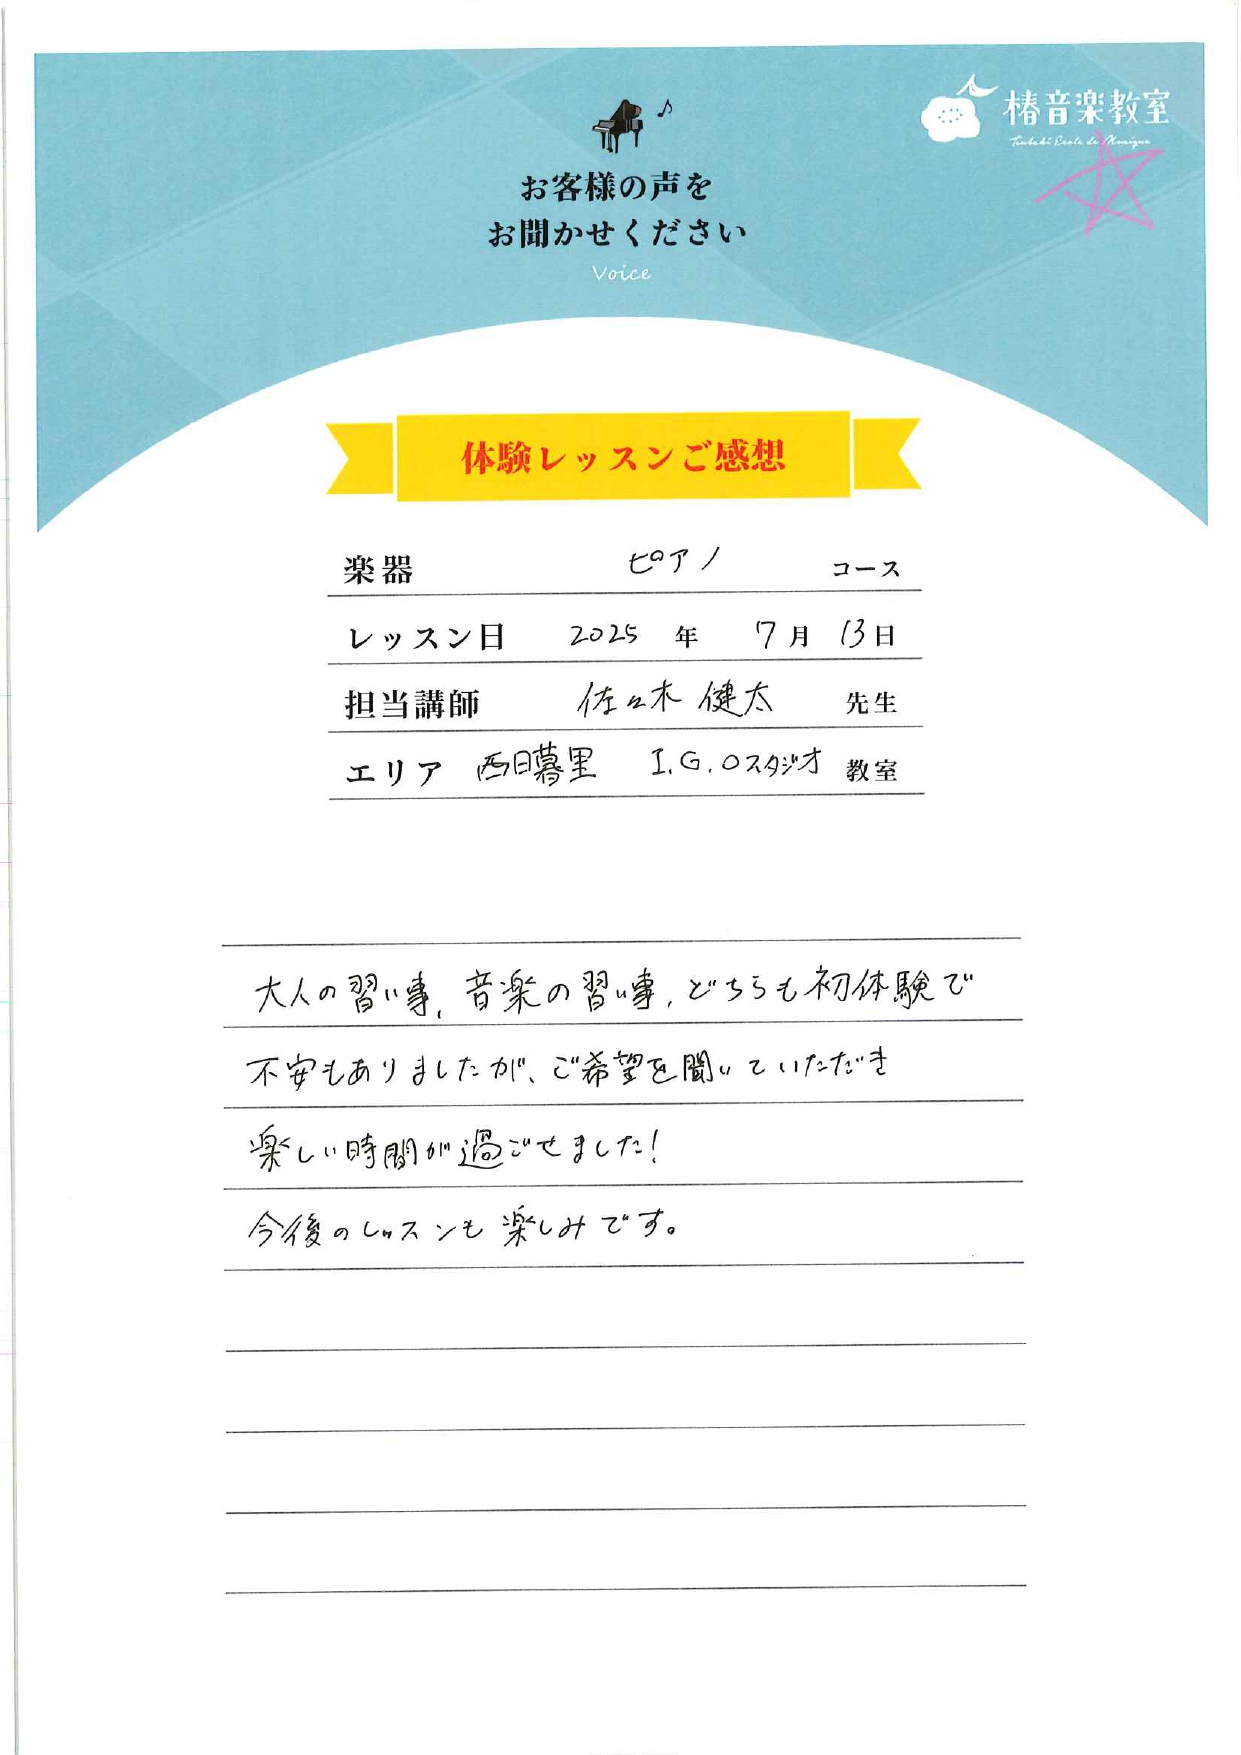 椿音楽教室
Tsubaki Ecole de Musique
お客様の声を
お聞かせください
Voice
体験レッスンご感想
楽器 ピアノ コース
レッスン日 2025 年 7 月 13 日
担当講師 佐々木 健太 先生
エリア 西日暮里 I.G.Oスタジオ 教室
大人の習い事、音楽の習い事、どちらも初体験で
不安もありましたが、ご希望を聞いていただき
楽しい時間が過ごせました!
今後のレッスンも楽しみです。